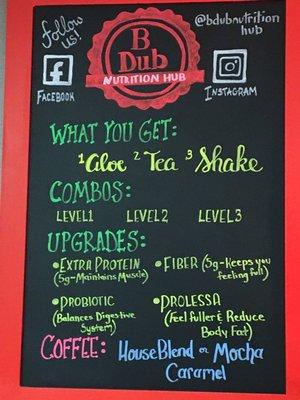 follow us!
@bdubnutrition hub
B
Dub
NUTRITION HUB
FACEBOOK
INSTAGRAM
WHAT YOU GET:
1 Aloe 2 Tea 3 Shake
COMBOS:
LEVEL 1 LEVEL 2 LEVEL 3
UPGRADES:
• EXTRA PROTEIN
(5g-Maintains Muscle)
• FIBER (5g-Keeps you
feeling full)
• PROBIOTIC
(Balances Digestive
System)
• PROLESSA
(Feel fuller & Reduce
Body Fat)
COFFEE: House Blend or Mocha
Caramel